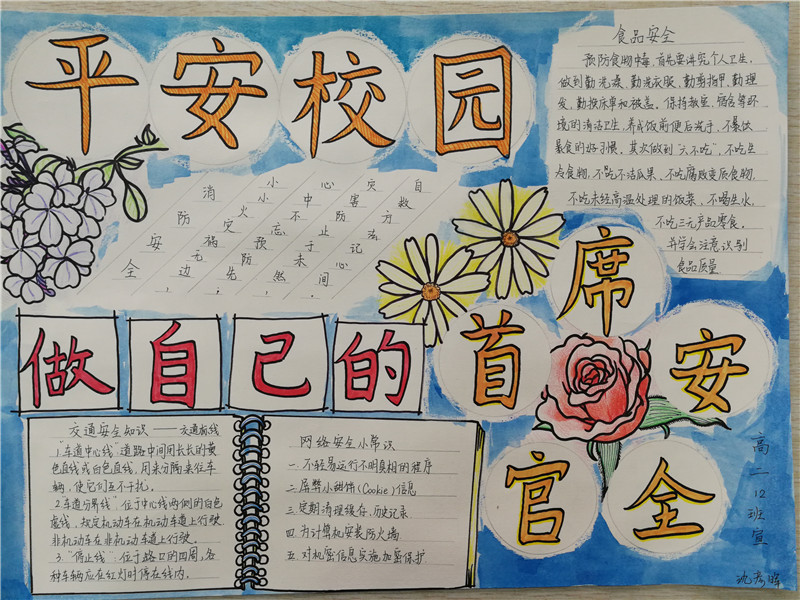 平安校园
食品安全
预防食物中毒,首先要讲究个人卫生,
做到勤洗澡、勤洗衣服、勤剪指甲、勤理
发、勤换床单和被盖,保持教室、宿舍等环
境的清洁卫生,养成饭前便后洗手,不暴饮
暴食的好习惯。其次做到"六不吃",不吃生
冷食物、不吃不洁瓜果、不吃腐败变质食物,
不吃未经高温处理的饭菜、不喝生水,
不吃三无产品零食。
并学会注意识别
食品质量
消防安全
小小火灾祸无边,
心中不忘预防先;
灾害防止于未然,
自救方法记心间。
做自己的
首席安全官
交通安全知识——交通标线
1."车道中心线"道路中间用长长的黄
色直线或白色直线,用来分隔来往车
辆,使它们互不干扰。
2."车道分界线"位于中心线两侧的白色
虚线,规定机动车在机动车道上行驶,
非机动车在非机动车道上行驶。
3."停止线"位于路口的四周,各
种车辆应在红灯时停在线内。
网络安全小常识
一.不轻易运行不明真相的程序
二.屏弊小甜饼(Cookie)信息
三.定期清理缓存、历史记录
四.为计算机安装防火墙
五.对机密信息实施加密保护
高二12班宣